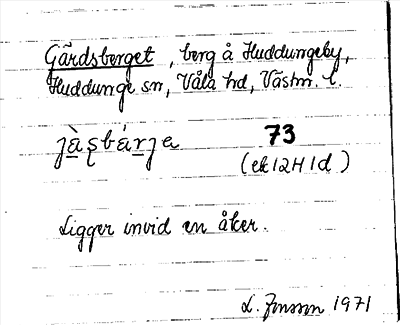 Gårdsberget, berg å Huddungeby,
Huddunge sn, Våla hd, Västm. l.
jàșbárje 73
(ek 12H 1d)
Ligger invid en åker.
L. Jonsson 1971